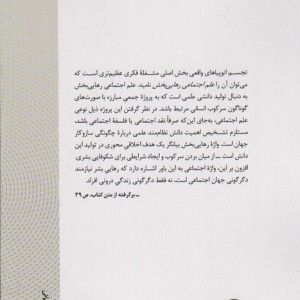 تجسم اتوپیاهای واقعی بخش اصلی مشغلهٔ فکری عظیم‌تری است که
می‌توان آن را علم اجتماعی رهایی‌بخش نامید. علم اجتماعی رهایی‌بخش
به دنبال تولید دانشی علمی است که به پروژهٔ جمعی مبارزه با صورت‌های
گوناگون سرکوب انسانی مرتبط باشد. در نظر گرفتن این پروژه ذیل نوعی
علم اجتماعی، به‌جای این‌که صرفاً نقد اجتماعی یا فلسفهٔ اجتماعی باشد،
مستلزم تشخیص اهمیت دانش نظام‌مند علمی دربارهٔ چگونگی سازوکار
جهان است. واژهٔ رهایی‌بخش بیانگر یک هدف اخلاقی محوری در تولید این
دانش است ــ از میان بردن سرکوب و ایجاد شرایطی برای شکوفایی بشری.
افزون بر این، واژهٔ اجتماعی به این باور اشاره دارد که رهایی بشر نیازمند
دگرگونی جهان اجتماعی است، نه فقط دگرگونی زندگی درونی افراد.
ــ برگرفته از متن کتاب، ص ۳۹